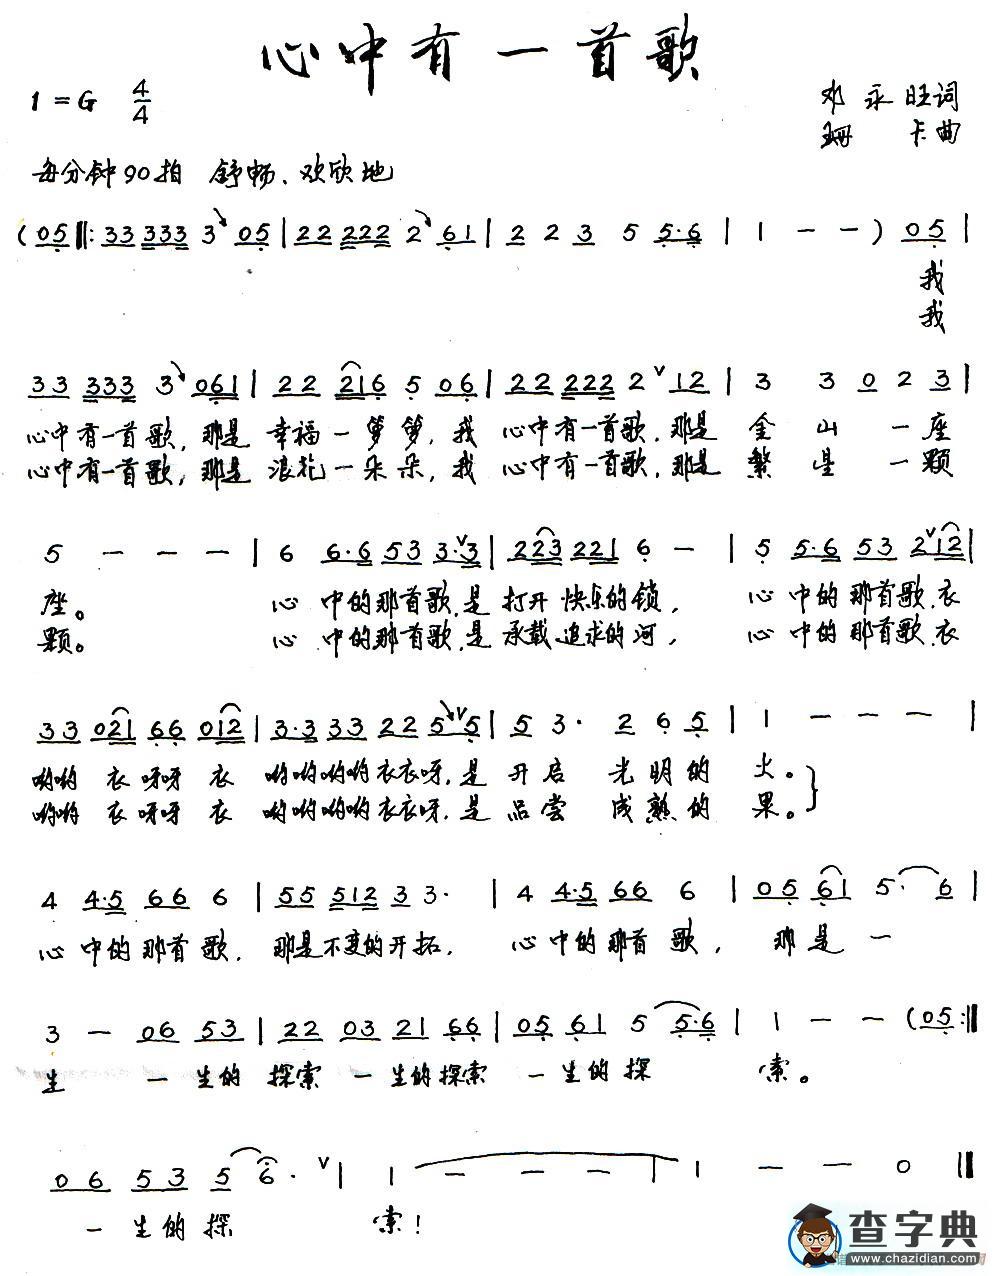 心中有一首歌
1=G 4/4
邓永旺词
珊卡曲
每分钟90拍 舒畅、欢欣地
(05‖: 33 333 3 05 | 22 222 2 61 | 2 2 3 5 5·6 | 1 - - ) 05 |
我
我
33 333 3 061 | 22 216 5 06 | 22 222 2 ∨ 12 | 3 3 0 2 3 |
心中有一首歌,那是幸福一箩箩,我心中有一首歌,那是金山一座
心中有一首歌,那是浪花一朵朵,我心中有一首歌,那是繁星一颗
5 - - - | 6 6·6 53 3·∨3 | 223 221 6 - | 5 5·6 53 2∨12 |
座。 心中的那首歌,是打开快乐的锁, 心中的那首歌,衣
颗。 心中的那首歌,是承载追求的河, 心中的那首歌,衣
33 021 66 012 | 3·3 33 22 5∨5 | 5 3· 2 6 5 | 1 - - - |
哟哟衣呀呀衣哟哟哟哟衣衣呀,是开启光明的火。
哟哟衣呀呀衣哟哟哟哟衣衣呀,是品尝成熟的果。
4 4·5 66 6 | 55 512 3 3· | 4 4·5 66 6 | 05 61 5· 6 |
心中的那首歌,那是不变的开拓, 心中的那首歌, 那是一
3 - 06 53 | 22 03 21 66 | 05 61 5 5·6 | 1 - - (05:‖
生 一生的探索一生的探索一生的探 索。
06 53 5 6· ∨ | 1 - - - | 1 - - 0 ‖
一生的探 索!
查字典
www.chazidian.com